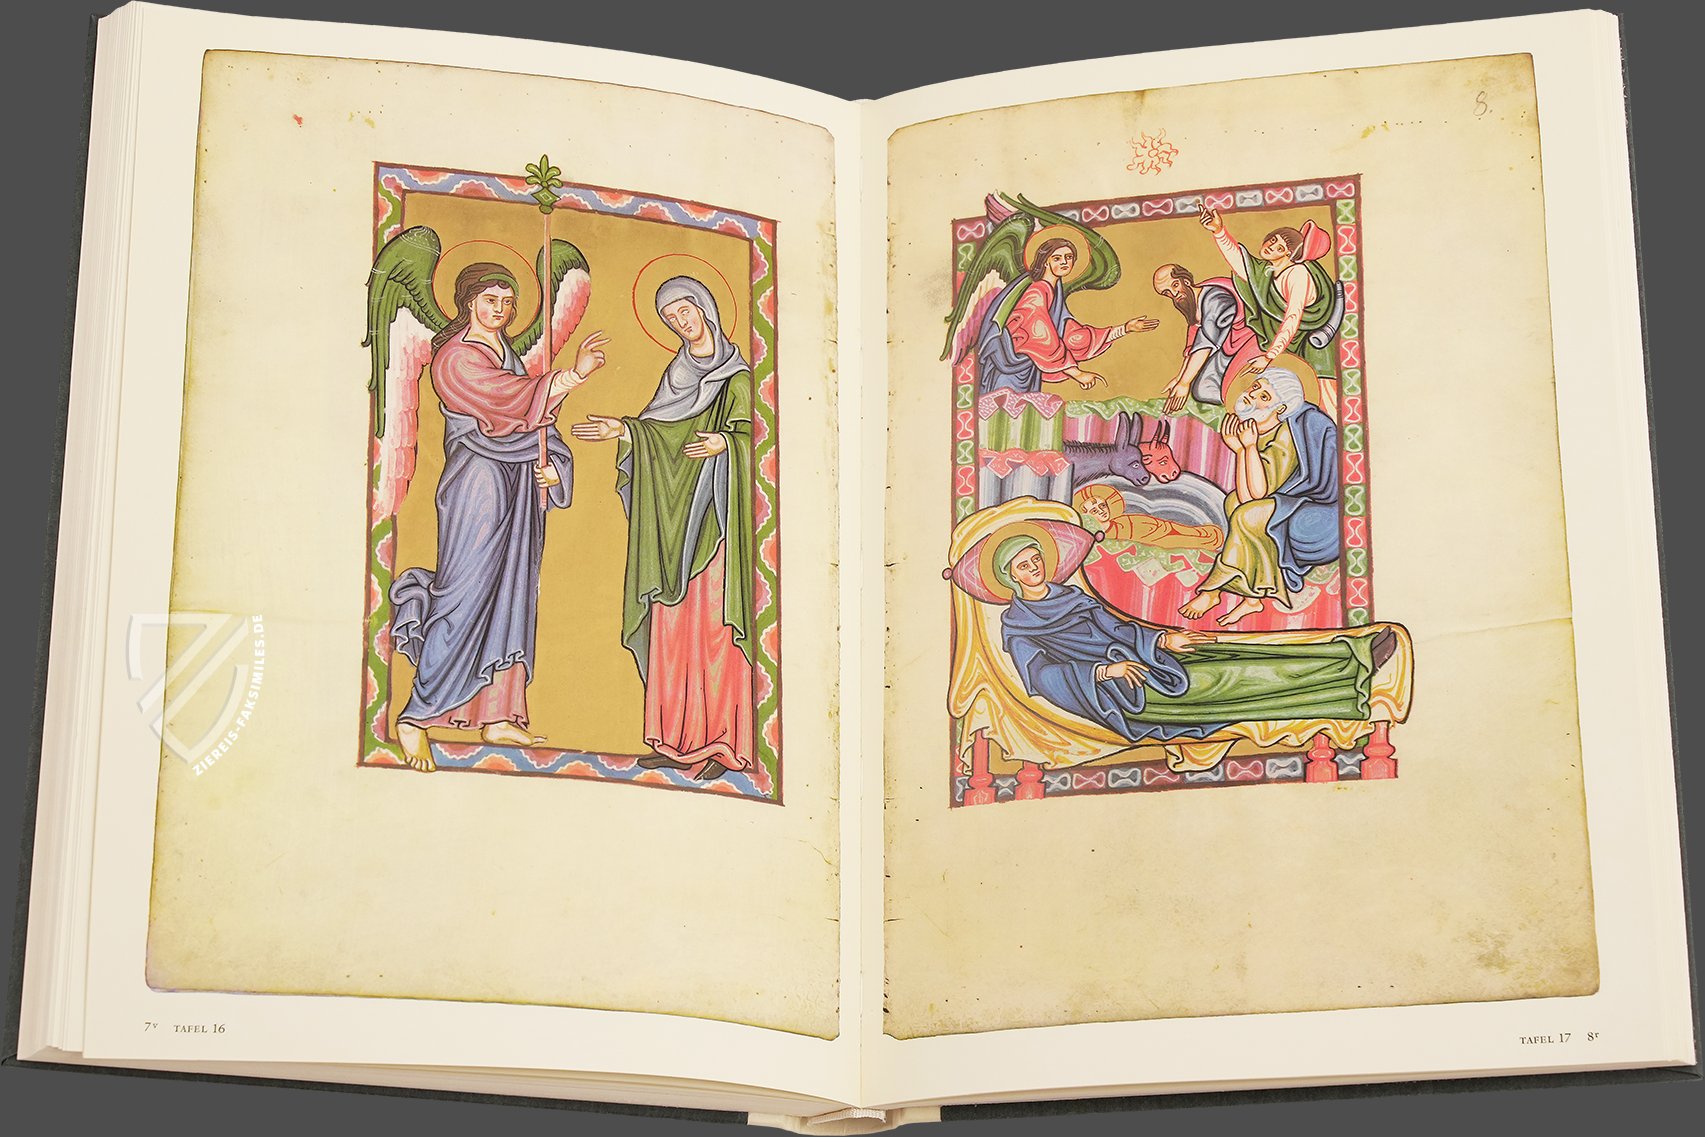 8.
ZIEREIS-FAKSIMILES.DE
7v TAFEL 16
TAFEL 17 8r